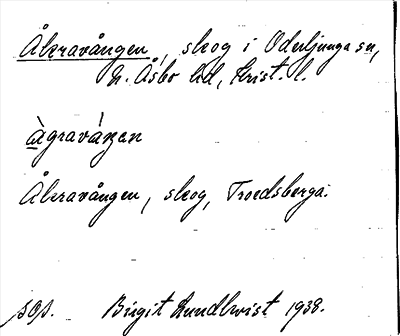 Åkravången, skog i Oderljunga sn,
N. Åsbo hd, Krist. l.
àgraváŋen
Åkravången, skog, Troedsberga.
Birgit Lundkvist 1938.